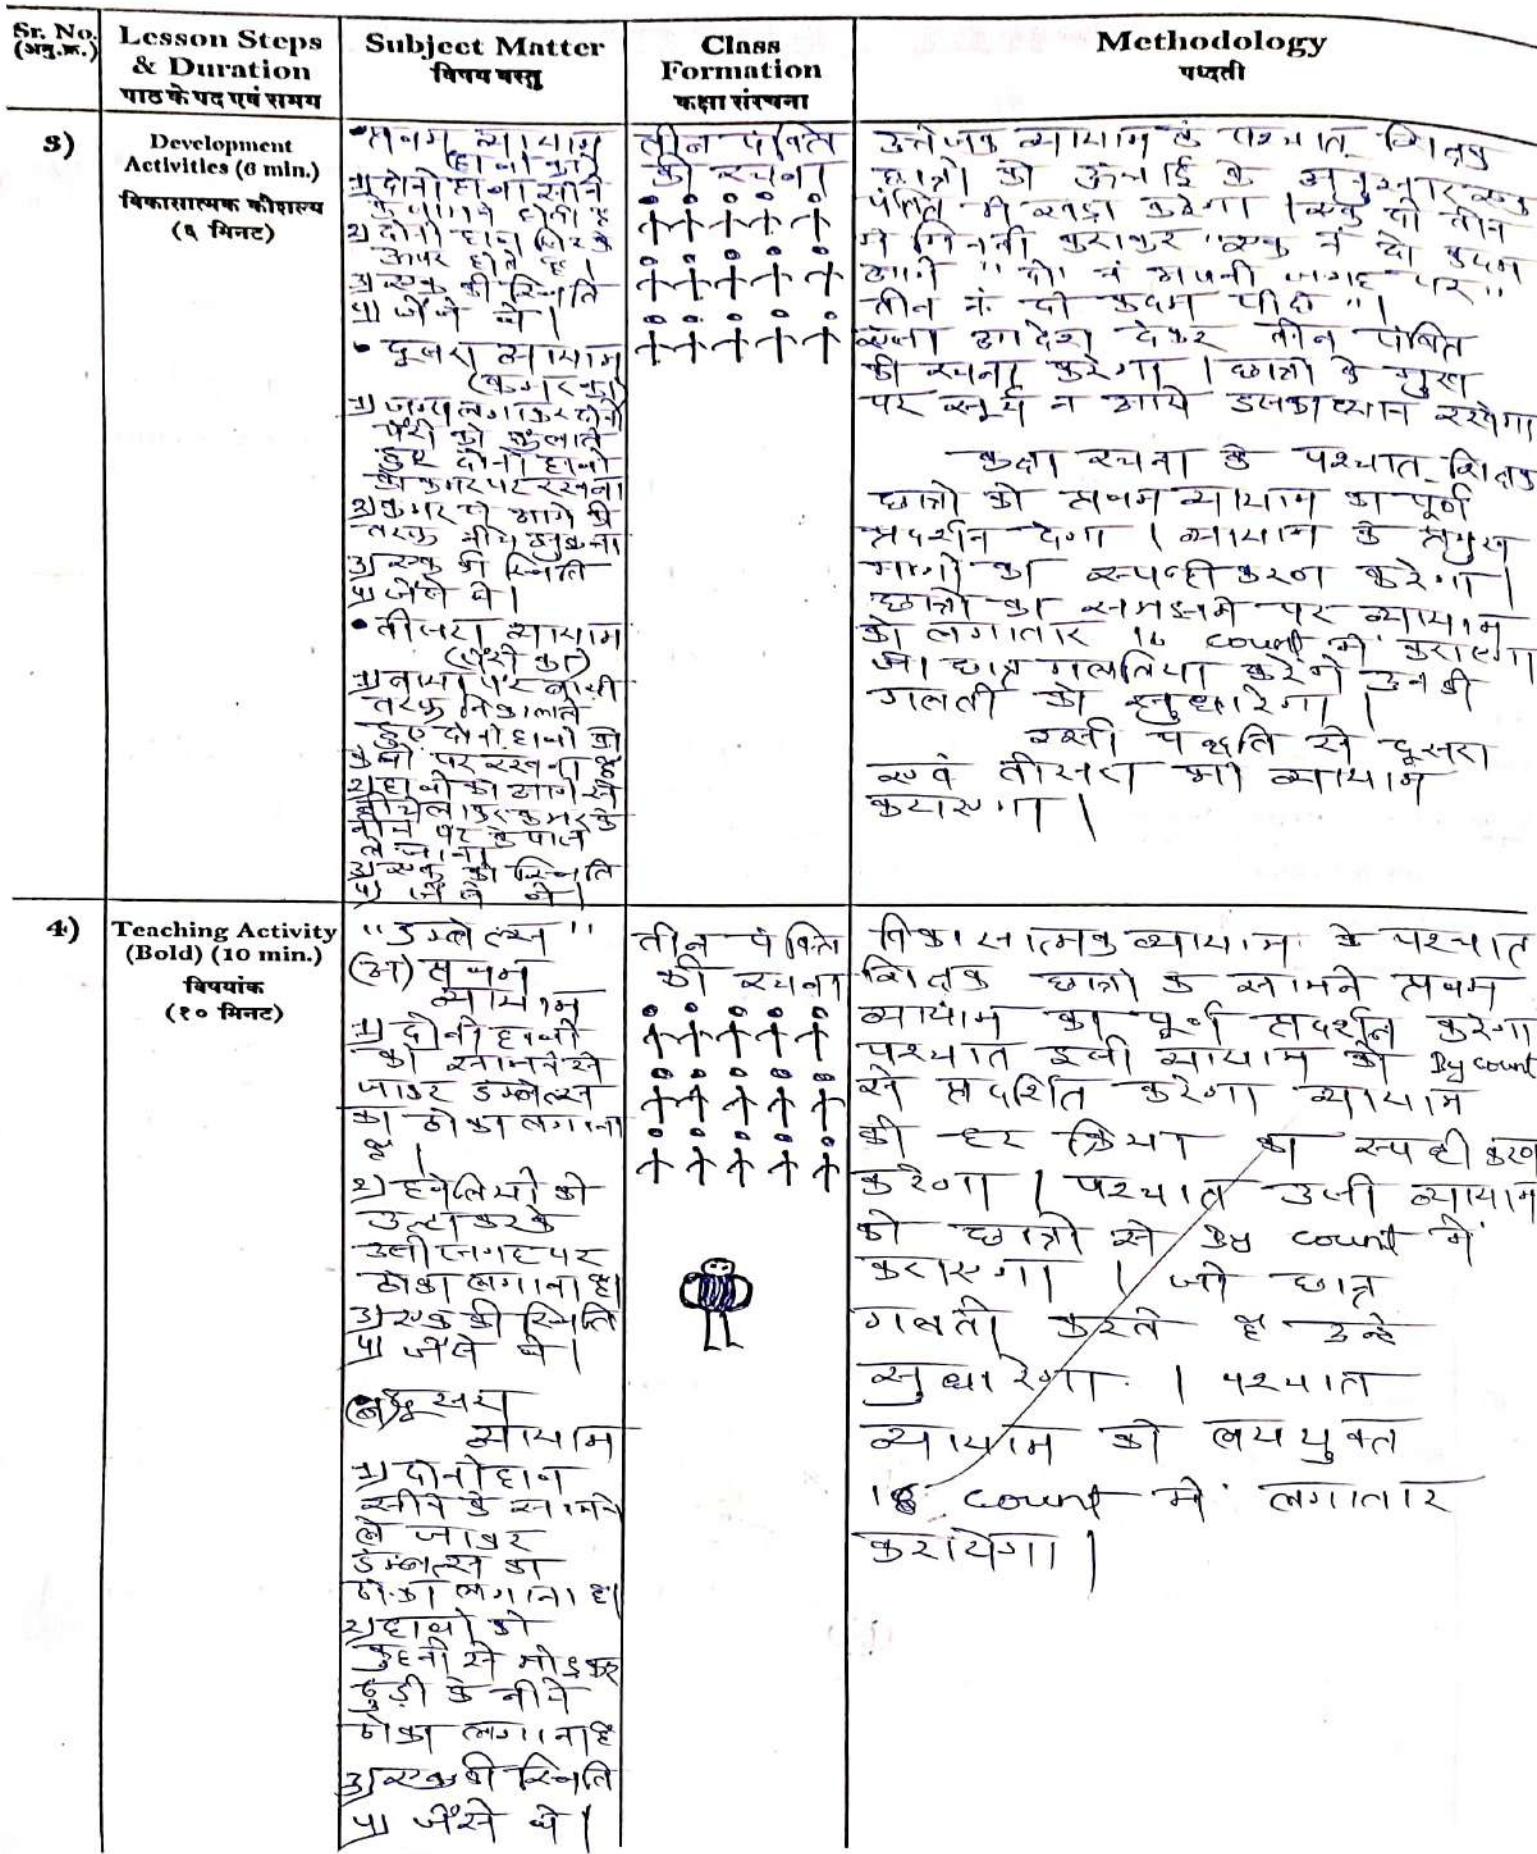 Sr. No.
(अनु.क्र.)
Lesson Steps
& Duration
पाठ के पद एवं समय
Subject Matter
विषय वस्तु
Class
Formation
कक्षा संरचना
Methodology
पध्दती
3)
Development
Activities (6 min.)
विकासात्मक कौशल्य
(६ मिनट)
• प्रथम व्यायाम
(हाथों का)
1) दोनों हाथ सीने
के सामने होते है
2) दोनों हाथ सिर के
ऊपर होते है।
3) एक की स्थिति
4) जैसे थे।
• दूसरा व्यायाम
(कमर का)
1) जम्प लगाकर दोनों
पैरों को फैलाते
हुए दोनों हाथों
को कमर पर रखना
2) कमर से आगे की
तरफ नीचे झुकना
3) एक की स्थिति
4) जैसे थे।
• तीसरा व्यायाम
(पैरों का)
1) बाया पैर बायी
तरफ निकालते
हुए दोनों हाथों को
कंधों पर रखना है
2) हाथों को आगे से
नीचे लाकर कमर के
नीचे पैर के पास
ले जाना
3) एक की स्थिति
4) जैसे थे।
तीन पंक्ति
की रचना
उत्तेजक व्यायाम के पश्चात शिक्षक
छात्रों को ऊंचाई के अनुसार एक
पंक्ति में खड़ा करेगा। एक दो तीन
में गिनती कराकर "एक नं दो कदम
आगे" "दो नं अपनी जगह पर"
तीन नं. दो कदम पीछे"।
ऐसा आदेश देकर तीन पंक्ति
की रचना करेगा। छात्रों के मुख
पर सूर्य न आये इसका ध्यान रखेगा
कक्षा रचना के पश्चात शिक्षक
छात्रों को प्रथम व्यायाम का पूर्ण
प्रदर्शन देगा। व्यायाम के प्रमुख
भागों का स्पष्टीकरण करेगा।
छात्रों का समझने पर व्यायाम
को लगातार 16 count में कराएगा
जो छात्र गलतिया करेंगे उनकी
गलती को सुधारेगा।
इसी पद्धति से दूसरा
एवं तीसरा भी व्यायाम
कराएगा।
4)
Teaching Activity
(Bold) (10 min.)
विषयांक
(१० मिनट)
"डम्बेल्स"
(अ) प्रथम
व्यायाम
1) दोनों हाथों
को सामने से
जाकर डम्बेल्स
का ठोका लगाना
है।
2) हथेलियों को
उल्टा करके
उसी जगह पर
ठोका लगाना है।
3) एक की स्थिति
4) जैसे थे।
(ब) दूसरा
व्यायाम
1) दोनों हाथ
सीने के सामने
ले जाकर
डम्बेल्स का
ठोका लगाना है।
2) हाथों को
कुहनी से मोड़कर
ठुड़ी के नीचे
ठोका लगाना है
3) एक की स्थिति
4) जैसे थे।
तीन पंक्ति
की रचना
विकासात्मक व्यायाम के पश्चात
शिक्षक छात्रों के सामने प्रथम
व्यायाम का पूर्ण प्रदर्शन करेगा
पश्चात इसी व्यायाम को By count
से प्रदर्शित करेगा व्यायाम
की हर क्रिया का स्पष्टीकरण
करेगा। पश्चात उसी व्यायाम
को छात्रों से By count में
कराएगा। जो छात्र
गलती करते है उन्हे
सुधारेगा। पश्चात
व्यायाम को लययुक्त
count में लगातार
करायेगा।